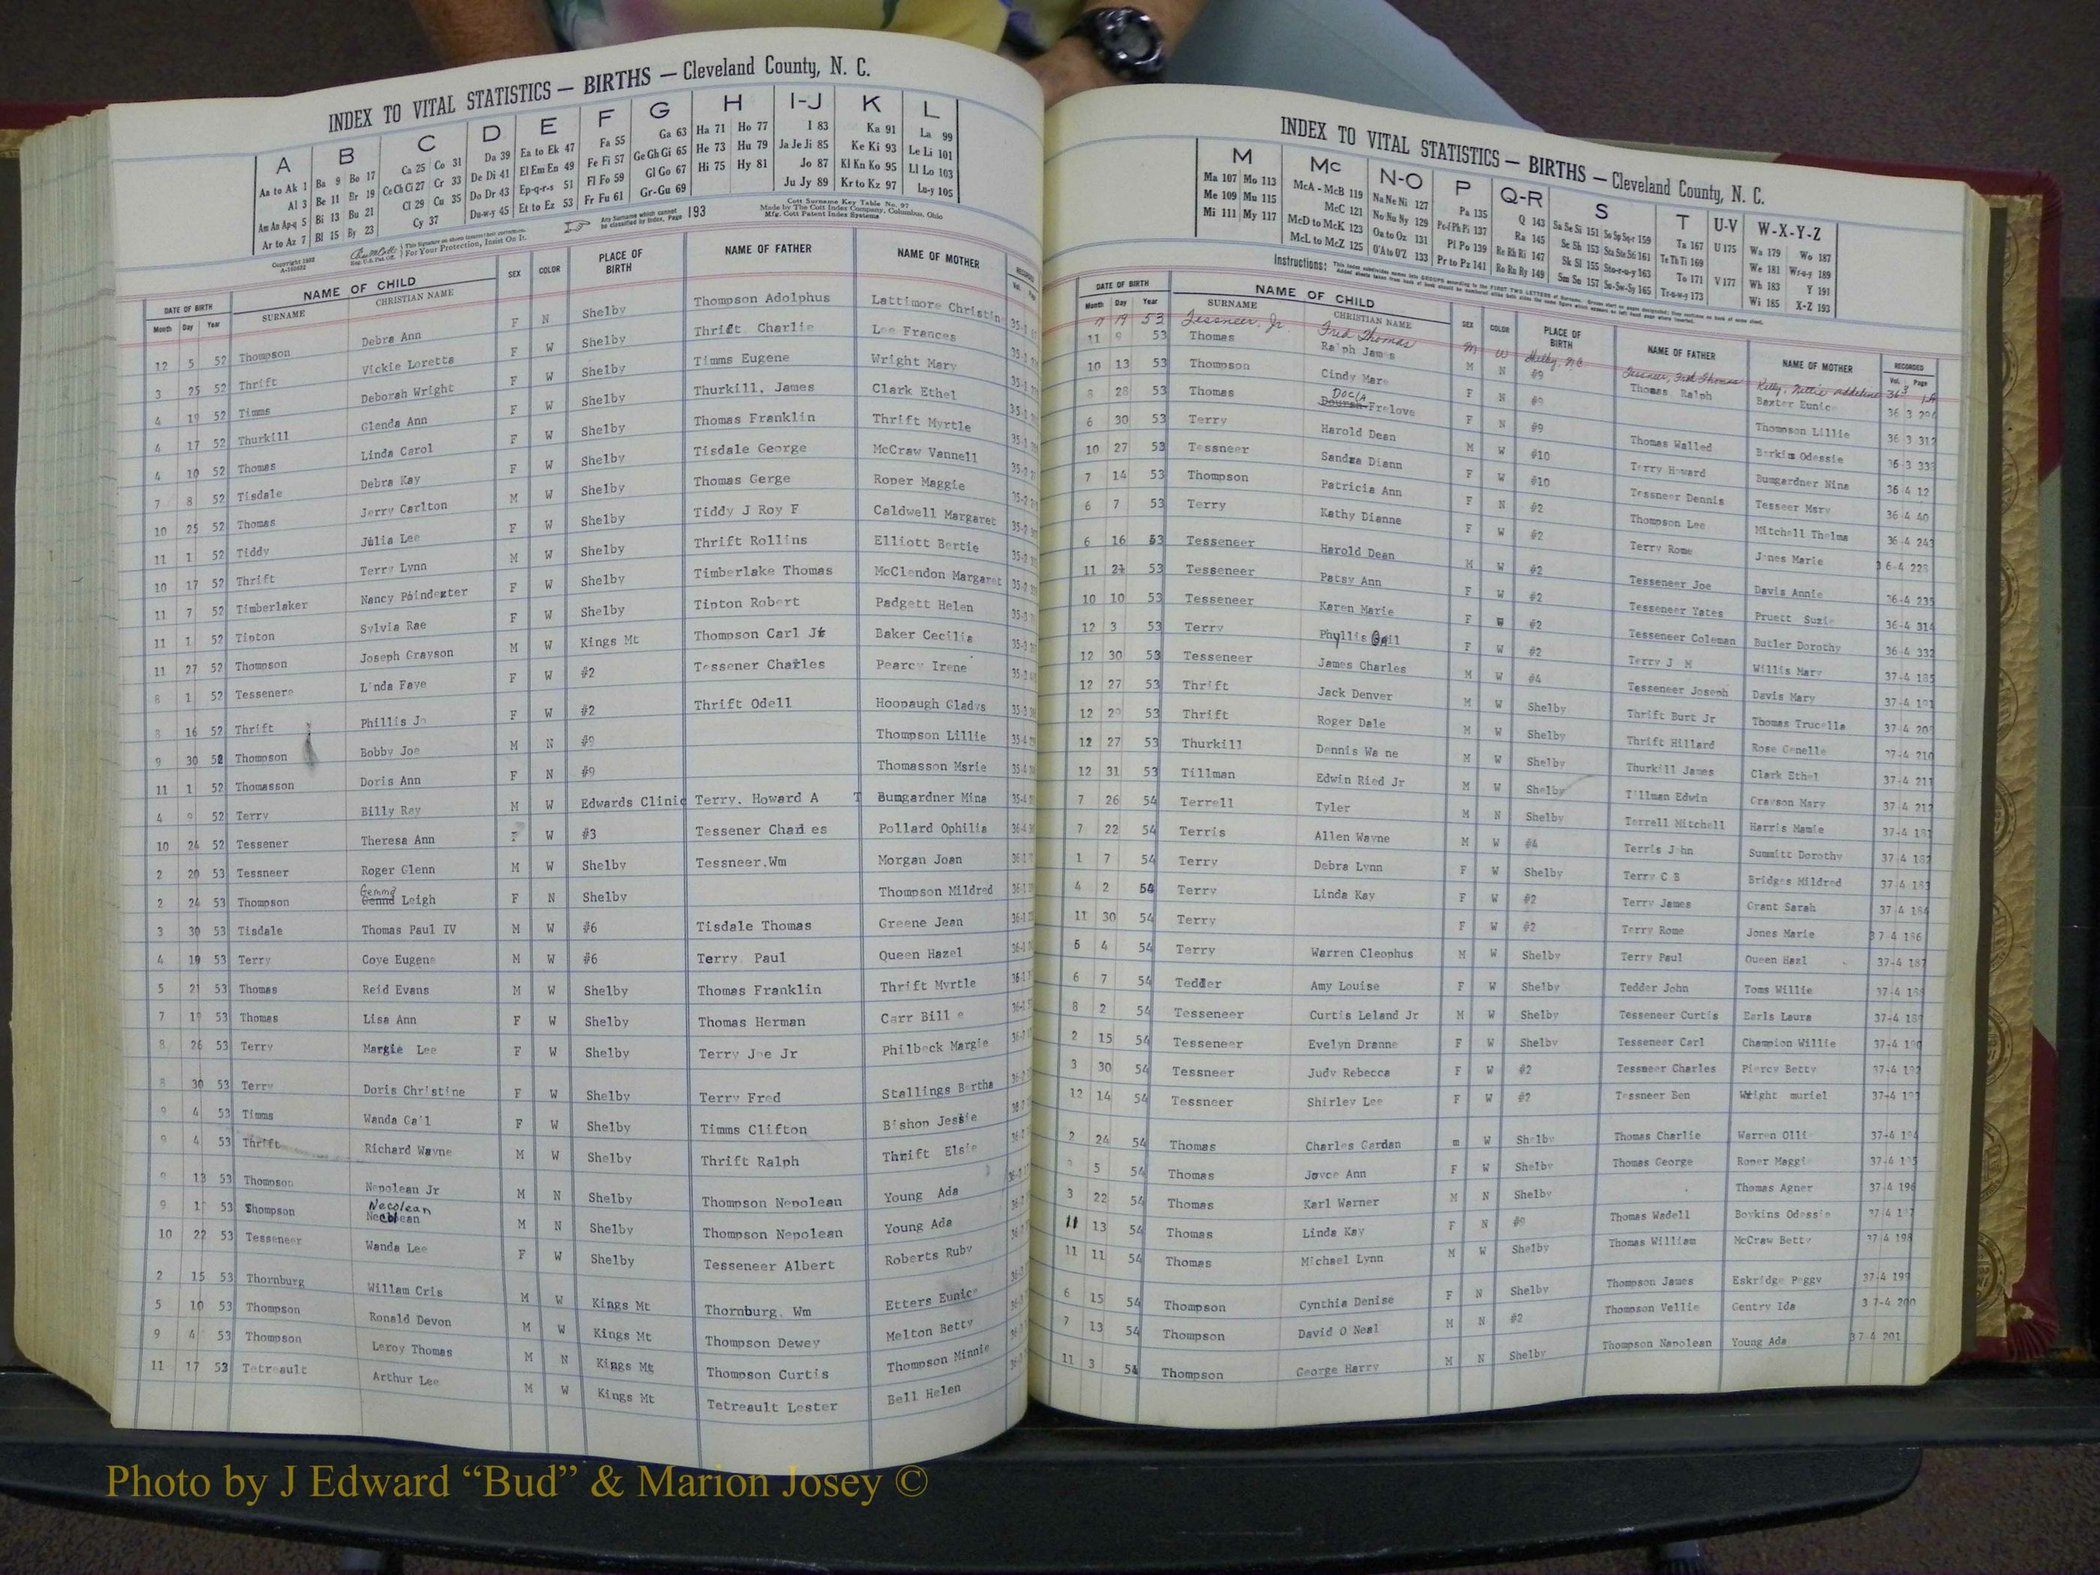 INDEX TO VITAL STATISTICS — BIRTHS — Cleveland County, N. C.
A B C D E F G H I-J K L
Aa to Ak 1 Ba 9 Bo 17 Ca 25 Co 31 Da 39 Ea to Ek 47 Fa 55 Ga 63 Ha 71 Ho 77 I 83 Ka 91 La 99
Al 3 Be 11 Br 19 Ce Ch Ci 27 Cr 33 De Di 41 El Em En 49 Fe Fi 57 Ge Gh Gi 65 He 73 Hu 79 Ja Je Ji 85 Ke Ki 93 Le Li 101
Am An Ap-q 5 Bi 13 Bu 21 Cl 29 Cu 35 Do Dr 43 Ep-q-r-s 51 Fl Fo 59 Gl Go 67 Hi 75 Hy 81 Jo 87 Kl Kn Ko 95 Ll Lo 103
Ar to Az 7 Bl 15 By 23 Cy 37 Du-w-y 45 Et to Ez 53 Fr Fu 61 Gr-Gu 69 Ju Jy 89 Kr to Kz 97 Lu-y 105
Any Surname which cannot be classified by Index, Page 193
Cott Surname Key Table No. 97
Made by The Cott Index Company, Columbus, Ohio
Mfg. Cott Patent Index Systems
For Your Protection, Insist On It.
DATE OF BIRTH NAME OF CHILD SEX COLOR PLACE OF BIRTH NAME OF FATHER NAME OF MOTHER
Month Day Year SURNAME CHRISTIAN NAME
12 5 52 Thompson Debra Ann F N Shelby Thompson Adolphus Lattimore Christin
3 25 52 Thrift Vickie Loretta F W Shelby Thrift Charlie Lee Frances
4 19 52 Timms Deborah Wright F W Shelby Timms Eugene Wright Mary
4 17 52 Thurkill Glenda Ann F W Shelby Thurkill, James Clark Ethel
4 10 52 Thomas Linda Carol F W Shelby Thomas Franklin Thrift Myrtle
7 8 52 Tisdale Debra Kay F W Shelby Tisdale George McCraw Vannell
10 25 52 Thomas Jerry Carlton M W Shelby Thomas Gerge Roper Maggie
11 1 52 Tiddy Julia Lee F W Shelby Tiddy J Roy F Caldwell Margaret
10 17 52 Thrift Terry Lynn M W Shelby Thrift Rollins Elliott Bertie
11 7 52 Timberlaker Nancy Poindexter F W Shelby Timberlake Thomas McClendon Margaret
11 1 52 Tipton Sylvia Rae F W Shelby Tipton Robert Padgett Helen
11 27 52 Thompson Joseph Grayson M W Kings Mt Thompson Carl Jr Baker Cecilia
8 1 52 Tessenere Linda Faye F W #2 Tessener Charles Pearcy Irene
8 16 52 Thrift Phillis Jo F W #2 Thrift Odell Hoopaugh Gladys
9 30 52 Thompson Bobby Joe M N #9 Thompson Lillie
11 1 52 Thomasson Doris Ann F N #9 Thomasson Msrie
4 9 52 Terry Billy Ray M W Edwards Clinic Terry, Howard A T Bumgardner Mina
10 24 52 Tessener Theresa Ann F W #3 Tessener Charles Pollard Ophilia
2 20 53 Tessneer Roger Glenn M W Shelby Tessneer,Wm Morgan Joan
2 24 53 Thompson Gemmo Leigh F N Shelby Thompson Mildred
3 30 53 Tisdale Thomas Paul IV M W #6 Tisdale Thomas Greene Jean
4 10 53 Terry Coye Eugene M W #6 Terry Paul Queen Hazel
5 21 53 Thomas Reid Evans M W Shelby Thomas Franklin Thrift Myrtle
7 53 Thomas Lisa Ann F W Shelby Thomas Herman Carr Bill e
8 26 53 Terry Margie Lee F W Shelby Terry Joe Jr Philbeck Margie
8 30 53 Terry Doris Christine F W Shelby Terry Fred Stallings Bertha
9 4 53 Timms Wanda Ga'l F W Shelby Timms Clifton Bishop Jessie
9 4 53 Thrift Richard Wayne M W Shelby Thrift Ralph Thrift Elsie
9 13 53 Thompson Nepolean Jr M N Shelby Thompson Nepolean Young Ada
9 53 Thompson Necolean M N Shelby Thompson Nepolean Young Ada
10 22 53 Tesseneer Wanda Lee F W Shelby Tesseneer Albert Roberts Ruby
2 15 53 Thornburg Willam Cris M W Kings Mt Thornburg, Wm Etters Eunice
5 10 53 Thompson Ronald Devon M W Kings Mt Thompson Dewey Melton Betty
9 4 53 Thompson Leroy Thomas M N Kings Mt Thompson Curtis Thompson Minnie
11 17 53 Tetreault Arthur Lee M W Kings Mt Tetreault Lester Bell Helen
INDEX TO VITAL STATISTICS — BIRTHS — Cleveland County, N. C.
M Mc N-O P Q-R S T U-V W-X-Y-Z
Ma 107 Mo 113 McA - McB 119 Na Ne Ni 127 Pa 135 Q 143 Sa Se Si 151 So Sp Sq-r 159 Ta 167 U 175 Wa 179 Wo 187
Me 109 Mu 115 McC 121 No Nu Ny 129 Pe-f Ph Pi 137 Ra 145 Sc Sh 153 Sta Ste Sti 161 Te Th Ti 169 We 181 Wr-u-y 189
Mi 111 My 117 McD to McK 123 Oa to Oz 131 Pl Po 139 Re Rh Ri 147 Sk Sl 155 Sto-r-u-y 163 To 171 V 177 Wh 183 Y 191
McL to McZ 125 O'A to O'Z 133 Pr to Pz 141 Ro Ru Ry 149 Sm Sn 157 Su-Sw-Sy 165 Tr-u-w-y 173 Wi 185 X-Z 193
DATE OF BIRTH NAME OF CHILD SEX COLOR PLACE OF BIRTH NAME OF FATHER NAME OF MOTHER RECORDED
Month Day Year SURNAME CHRISTIAN NAME Vol. Page
11 19 53 Tessneer, Jr. Fred Thomas M W Shelby, NC Tessneer, Fred Thomas Kelly, Nettie Addeline
11 9 53 Thomas Ralph James M N #9 Thomas Ralph Baxter Eunice 36 3 294
10 13 53 Thompson Cindy Mare F N #9 Thompson Lillie 36 3 312
8 28 53 Thomas Docia Frelove F N #9 Thomas Walled Barkim Odessie 36 3 333
6 30 53 Terry Harold Dean M W #10 Terry Howard Bumgardner Nina 36 4 12
10 27 53 Tessneer Sandra Diann F W #10 Tessneer Dennis Tesseer Mary 36 4 40
7 14 53 Thompson Patricia Ann F N #2 Thompson Lee Mitchell Thelma 36 4 243
6 7 53 Terry Kathy Dianne F W #2 Terry Rome Jones Marie
6 16 53 Tesseneer Harold Dean M W #2 Tesseneer Joe Davis Annie 36-4 235
11 21 53 Tesseneer Patsy Ann F W #2 Tesseneer Yates Pruett Suzie 36-4 314
10 10 53 Tesseneer Karen Marie F W #2 Tesseneer Coleman Butler Dorothy 36-4 332
12 3 53 Terry Phyllis Gail F W #2 Terry J M Willis Mary 37-4 185
12 30 53 Tesseneer James Charles M W #4 Tesseneer Joseph Davis Mary 37-4 191
12 27 53 Thrift Jack Denver M W Shelby Thrift Burt Jr Thomas Trucella 37-4 209
12 53 Thrift Roger Dale M W Shelby Thrift Hillard Rose Genelle 37-4 210
12 27 53 Thurkill Dennis Wa ne M W Shelby Thurkill James Clark Ethel 37-4 211
12 31 53 Tillman Edwin Ried Jr M W Shelby Tillman Edwin Grayson Mary 37-4 212
7 26 54 Terrell Tyler M N Shelby Terrell Mitchell Harris Mamie 37-4 181
7 22 54 Terris Allen Wayne M W #4 Terris John Summitt Dorothy 37-4 182
1 7 54 Terry Debra Lynn F W Shelby Terry C B Bridges Mildred 37-4 183
4 2 54 Terry Linda Kay F W #2 Terry James Grant Sarah 37-4 184
11 30 54 Terry F W #2 Terry Rome Jones Marie 37-4 186
5 4 54 Terry Warren Cleophus M W Shelby Terry Paul Queen Hazl 37-4 187
6 7 54 Tedder Amy Louise F W Shelby Tedder John Toms Willie 37-4 188
8 2 54 Tesseneer Curtis Leland Jr M W Shelby Tesseneer Curtis Earls Laura 37-4 189
2 15 54 Tesseneer Evelyn Dranne F W Shelby Tesseneer Carl Champion Willie 37-4 190
3 30 54 Tesseneer Judy Rebecca F W #2 Tessneer Charles Piercy Betty 37-4 192
12 14 54 Tessneer Shirley Lee F W #2 Tessneer Ben Wright muriel 37-4 193
2 24 54 Thomas Charles Gardan m W Shelby Thomas Charlie Warren Olli 37-4 194
5 54 Thomas Joyce Ann F W Shelby Thomas George Roper Maggi 37-4 195
3 22 54 Thomas Karl Warner M N Shelby Thomas Agner 37-4 196
11 13 54 Thomas Linda Kay F N #9 Thomas Wadell Boykins Odessie 37-4 197
11 11 54 Thomas Michael Lynn M W Shelby Thomas William McCraw Betty 37 4 198
6 15 54 Thompson Cynthia Denise F N Shelby Thompson James Eskridge Peggy 37-4 199
7 13 54 Thompson David O Neal M N #2 Thompson Vellie Gentry Ida 3 7-4 200
11 3 54 Thompson George Harry M N Shelby Thompson Napolean Young Ada 37 4 201
Photo by J Edward “Bud” & Marion Josey ©